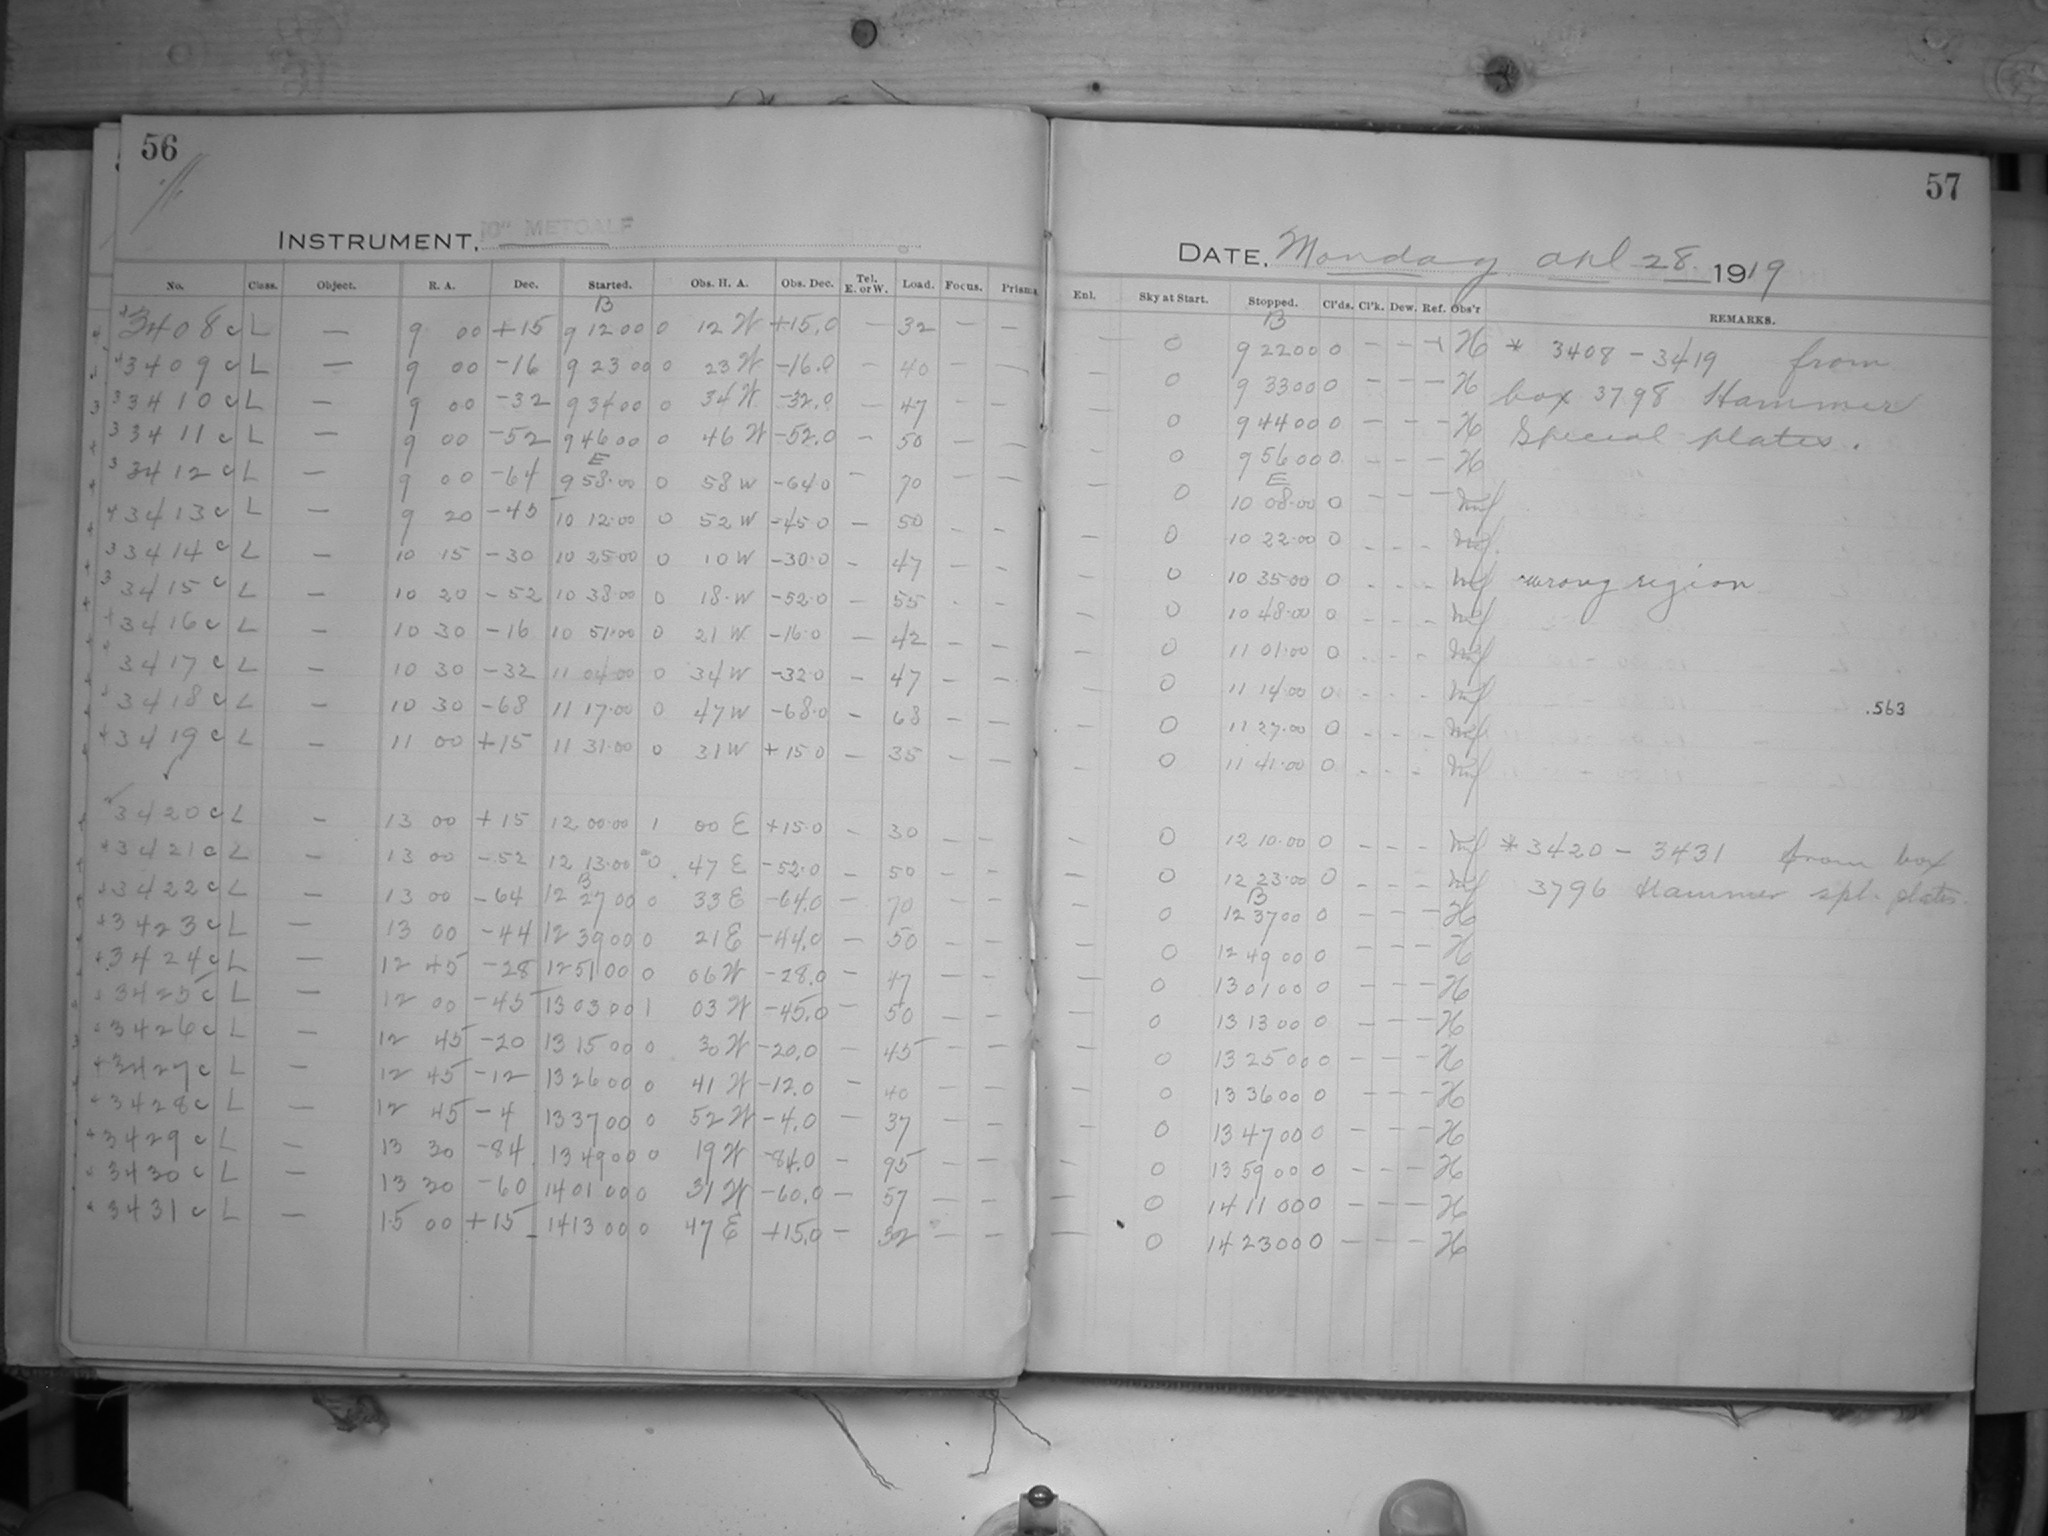 56
INSTRUMENT. 10" METCALF
No. Class. Object. R. A. Dec. Started. Obs. H. A. Obs. Dec. Tel. E. or W. Load. Focus. Prisms.
B
3408 c L — 9 00 +15 9 12 00 0 12 W +15.0 — 32 — —
3409 c L — 9 00 -16 9 23 00 0 23 W -16.0 — 40 — —
3410 c L — 9 00 -32 9 34 00 0 34 W -32.0 — 47 — —
3411 c L — 9 00 -52 9 46 00 0 46 W -52.0 — 50 — —
E
3412 c L — 9 00 -64 9 58.00 0 58 W -64.0 — 70 — —
3413 c L — 9 20 -45 10 12.00 0 52 W -45.0 — 50 — —
3414 c L — 10 15 -30 10 25.00 0 10 W -30.0 — 47 — —
3415 c L — 10 20 -52 10 38.00 0 18.W -52.0 — 55 - -
3416 c L — 10 30 -16 10 51.00 0 21 W -16.0 — 42 — —
3417 c L — 10 30 -32 11 04.00 0 34 W -32.0 — 47 — —
3418 c L — 10 30 -68 11 17.00 0 47 W -68.0 — 68 — —
3419 c L — 11 00 +15 11 31.00 0 31 W +15.0 — 35 — —
3420 c L — 13 00 +15 12 00.00 1 00 E +15.0 — 30 — —
3421 c L — 13 00 -52 12 13.00 0 47 E -52.0 — 50 — —
B
3422 c L — 13 00 -64 12 27 00 0 33 E -64.0 — 70 — —
3423 c L — 13 00 -44 12 39 00 0 21 E -44.0 — 50 — —
3424 c L — 12 45 -28 12 51 00 0 06 W -28.0 — 47 — —
3425 c L — 12 00 -45 13 03 00 1 03 W -45.0 — 50 — —
3426 c L — 12 45 -20 13 15 00 0 30 W -20.0 — 45 — —
3427 c L — 12 45 -12 13 26 00 0 41 W -12.0 — 40 — —
3428 c L — 12 45 -4 13 37 00 0 52 W -4.0 — 37 — —
3429 c L — 13 30 -84 13 49 00 0 19 W -84.0 — 95 — —
3430 c L — 13 30 -60 14 01 00 0 31 W -60.0 — 57 — —
3431 c L — 15 00 +15 14 13 00 0 47 E +15.0 — 32 — —
57
DATE. Monday Apl 28. 1919
Enl. Sky at Start. Stopped. Cl'ds. Cl'k. Dew. Ref. Obs'r REMARKS.
B
— 0 9 22 00 0 — — — H * 3408 - 3419 from
— 0 9 33 00 0 — — — H box 3798 Hammer
— 0 9 44 00 0 — — — H Special plates.
— 0 9 56 00 0 — — — H
E
— 0 10 08.00 0 — — —
— 0 10 22.00 0 - - -
— 0 10 35.00 0 - - - wrong region
— 0 10 48.00 0 - - -
— 0 11 01.00 0 - - -
— 0 11 14.00 0 - - -
.563
— 0 11 27.00 0 - - -
— 0 11 41.00 0 - - -
— 0 12 10.00 0 - - - *3420 - 3431 from box
— 0 12 23.00 0 - - - 3796 Hammer spl. plates.
B
— 0 12 37 00 0 — — — H
— 0 12 49 00 0 — — — H
— 0 13 01 00 0 — — — H
— 0 13 13 00 0 — — — H
— 0 13 25 00 0 — — — H
— 0 13 36 00 0 — — — H
— 0 13 47 00 0 — — — H
— 0 13 59 00 0 — — — H
— 0 14 11 00 0 — — — H
— 0 14 23 00 0 — — — H